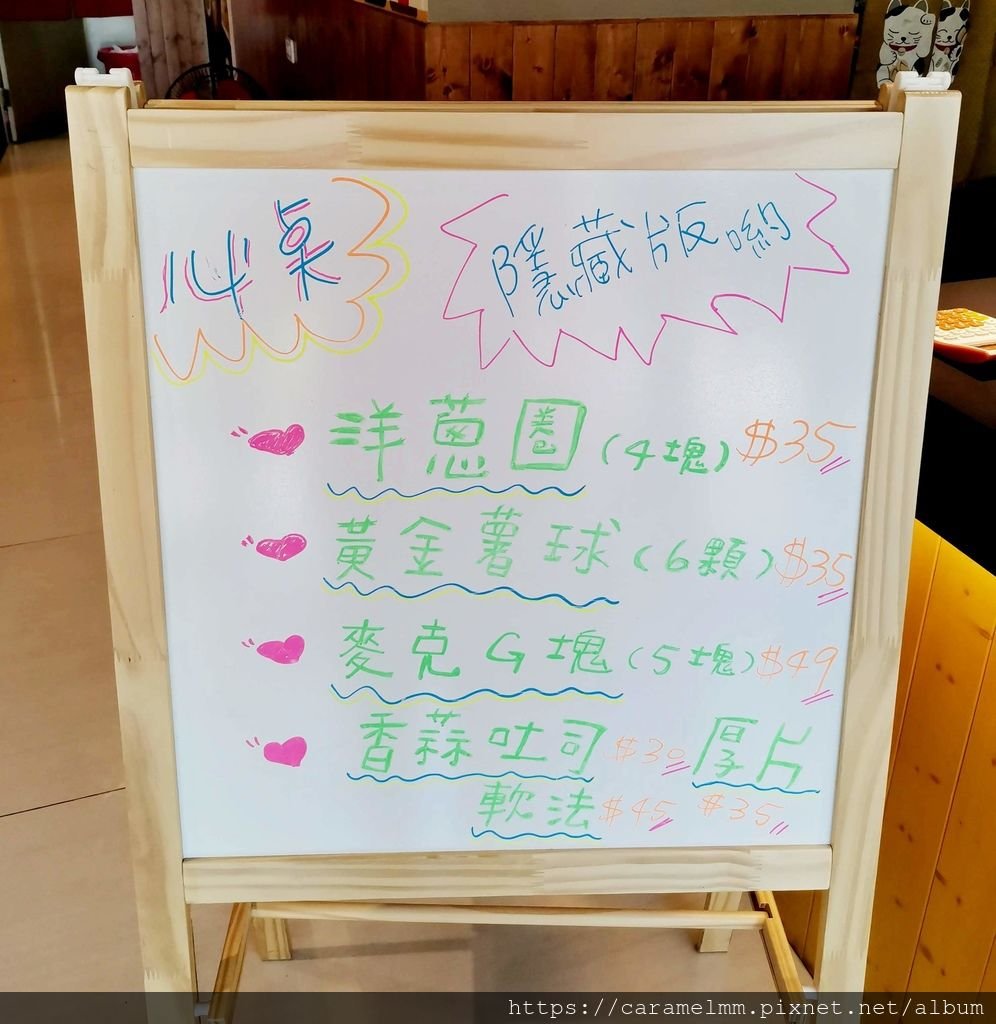 心桌
隱藏版喲
洋蔥圈(4塊)$35
黃金薯球(6顆)$35
麥克G塊(5塊)$49
香蒜吐司$30 厚片
軟法$45 $35
https://caramelmm.pixnet.net/album